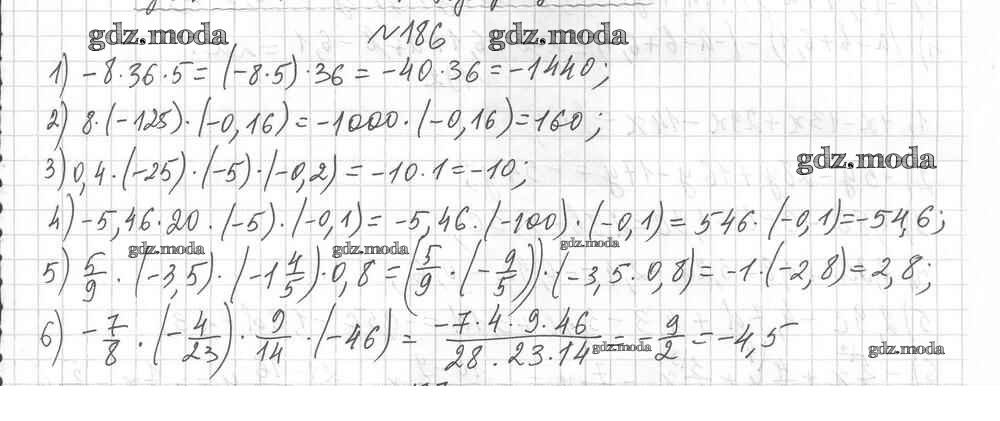 №186
gdz.moda gdz.moda
1) -8·36·5 = (-8·5)·36 = -40·36 = -1440;
2) 8·(-125)·(-0,16) = -1000·(-0,16) = 160;
gdz.moda
3) 0,4·(-25)·(-5)·(-0,2) = -10·1 = -10;
4) -5,46·20·(-5)·(-0,1) = -5,46·(-100)·(-0,1) = 546·(-0,1) = -54,6;
gdz.moda gdz.moda gdz.moda
5) 5/9·(-3,5)·(-1 4/5)·0,8 = (5/9·(-9/5))·(-3,5·0,8) = -1·(-2,8) = 2,8;
6) -7/8·(-4/23)·9/14·(-46) = -7·4·9·46/28·23·14 = -9/2 = -4,5
gdz.moda gdz.moda